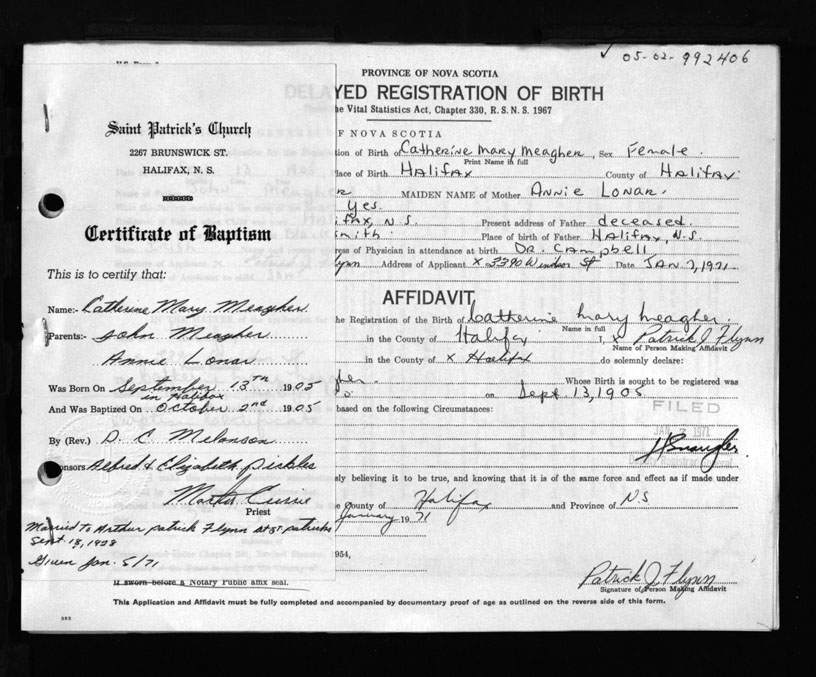 05-02-992406
PROVINCE OF NOVA SCOTIA
YED REGISTRATION OF BIRTH
he Vital Statistics Act, Chapter 330, R.S.N.S. 1967
Saint Patrick's Church
2267 BRUNSWICK ST.
HALIFAX, N. S.
Certificate of Baptism
This is to certify that:
Name:- Catherine Mary Meagher
Parents:- John Meagher
Annie Lonar
Was Born On September 13TH 1905
in Halifax
And Was Baptized On October 2nd 1905
By (Rev.) D. C Melanson
onsors Alfred & Elizabeth
Martin Currie
Priest
Married To Arthur Patrick Flynn at St. Patricks
Sept. 13, 1928
Given Jan. 5/71
F NOVA SCOTIA
tion of Birth of Catherine Mary Meagher, Sex Female.
Print Name in full
lace of Birth Halifax County of Halifax
MAIDEN NAME of Mother Annie Lonar.
Yes.
ifax, N.S. Present address of Father deceased.
smith. Place of birth of Father Halifax, N.S.
ress of Physician in attendance at birth DR. Campbell
lynn Address of Applicant x 3390 Windsor St Date JAN. 7, 1971
AFFIDAVIT
he Registration of the Birth of Catherine Mary Meagher.
Name in full
in the County of Halifax I, x Patrick J Flynn
Name of Person Making Affidavit
in the County of x Halifax do solemnly declare:
gher. Whose Birth is sought to be registered was
on Sept. 13, 1905
based on the following Circumstances:
FILED
1971
ly believing it to be true, and knowing that it is of the same force and effect as if made under
e County of Halifax and Province of N.S
January 1971
954,
Patrick J. Flynn
Signature of Person Making Affidavit
If sworn before a Notary Public affix seal.
This Application and Affidavit must be fully completed and accompanied by documentary proof of age as outlined on the reverse side of this form.